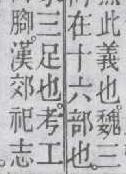 此義也。魏三
在十六部也。
三足也。考工
腳。漢郊祀志